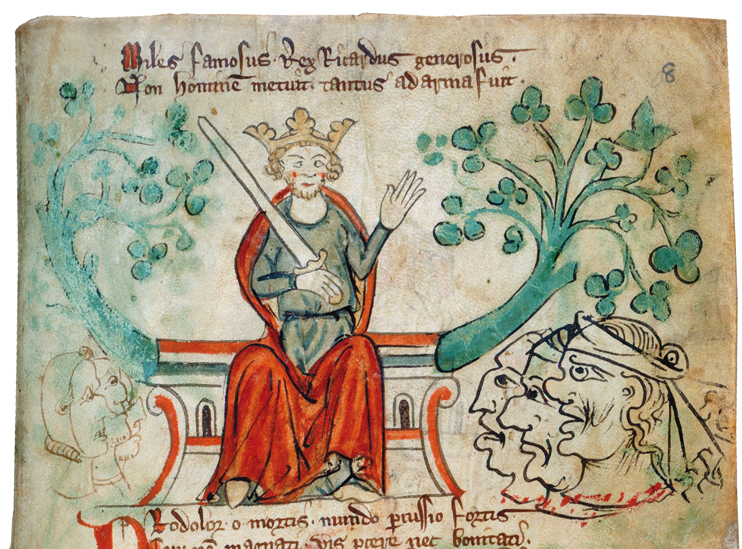 Miles famosus· Rex Ricardus generosus·
Non hominē metuit· tantus ad arma fuit·
8
Pro dolor· o mortis· mundo pcussio fortis
magnati· vis pcere nec bonitati·